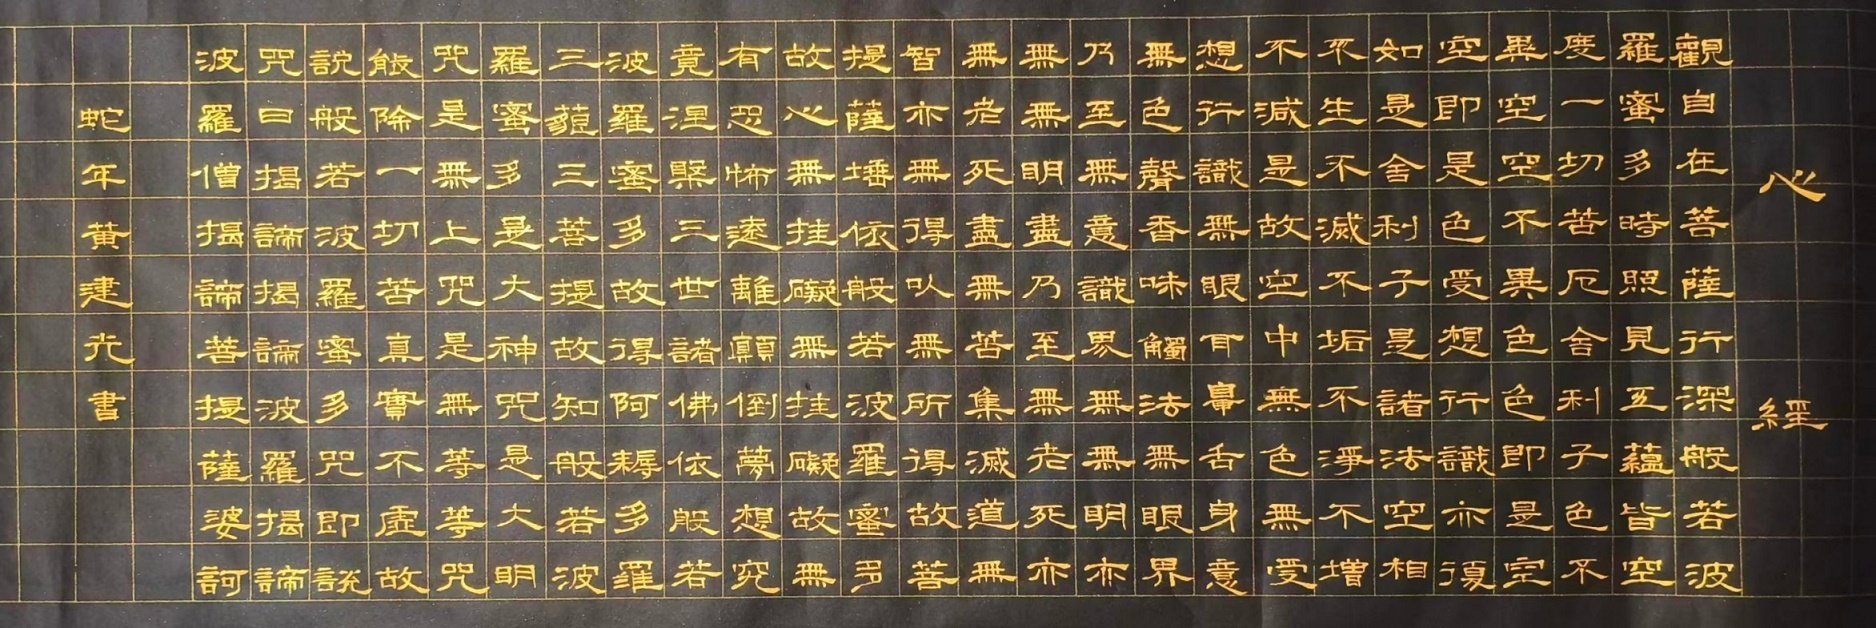 心經
觀自在菩薩行深般若波
羅蜜多時照見五蘊皆空
度一切苦厄舍利子色不
異空空不異色色即是空
空即是色受想行識亦復
如是舍利子是諸法空相
不生不滅不垢不淨不增
不減是故空中無色無受
想行識無眼耳鼻舌身意
無色聲香味觸法無眼界
乃至無意識界無無明亦
無無明盡乃至無老死亦
無老死盡無苦集滅道無
智亦無得以無所得故菩
提薩埵依般若波羅蜜多
故心無挂礙無挂礙故無
有恐怖遠離顛倒夢想究
竟涅槃三世諸佛依般若
波羅蜜多故得阿耨多羅
三藐三菩提故知般若波
羅蜜多是大神咒是大明
咒是無上咒是無等等咒
能除一切苦真實不虛故
說般若波羅蜜多咒即説
咒曰揭諦揭諦波羅揭諦
波羅僧揭諦菩提薩婆訶
蛇年黃建光書